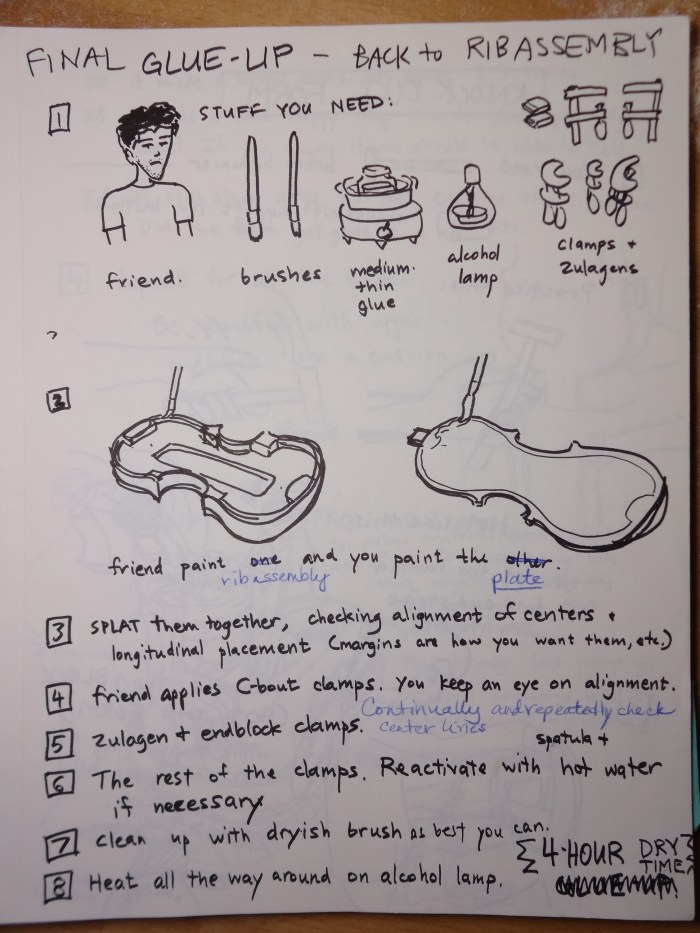 FINAL GLUE-UP - BACK to RIBASSEMBLY
1 STUFF YOU NEED:
friend. brushes medium-thin glue alcohol lamp clamps + zulagens
2
friend paint one and you paint the other.
ribassembly plate
3 SPLAT them together, checking alignment of centers +
longitudinal placement (margins are how you want them, etc.)
4 friend applies C-bout clamps. You keep an eye on alignment.
Continually and repeatedly check
center lines
5 zulagen + endblock clamps.
spatula +
6 The rest of the clamps. Reactivate with hot water
if necessary
7 clean up with dryish brush as best you can.
8 Heat all the way around on alcohol lamp.
4-HOUR DRY
TIME